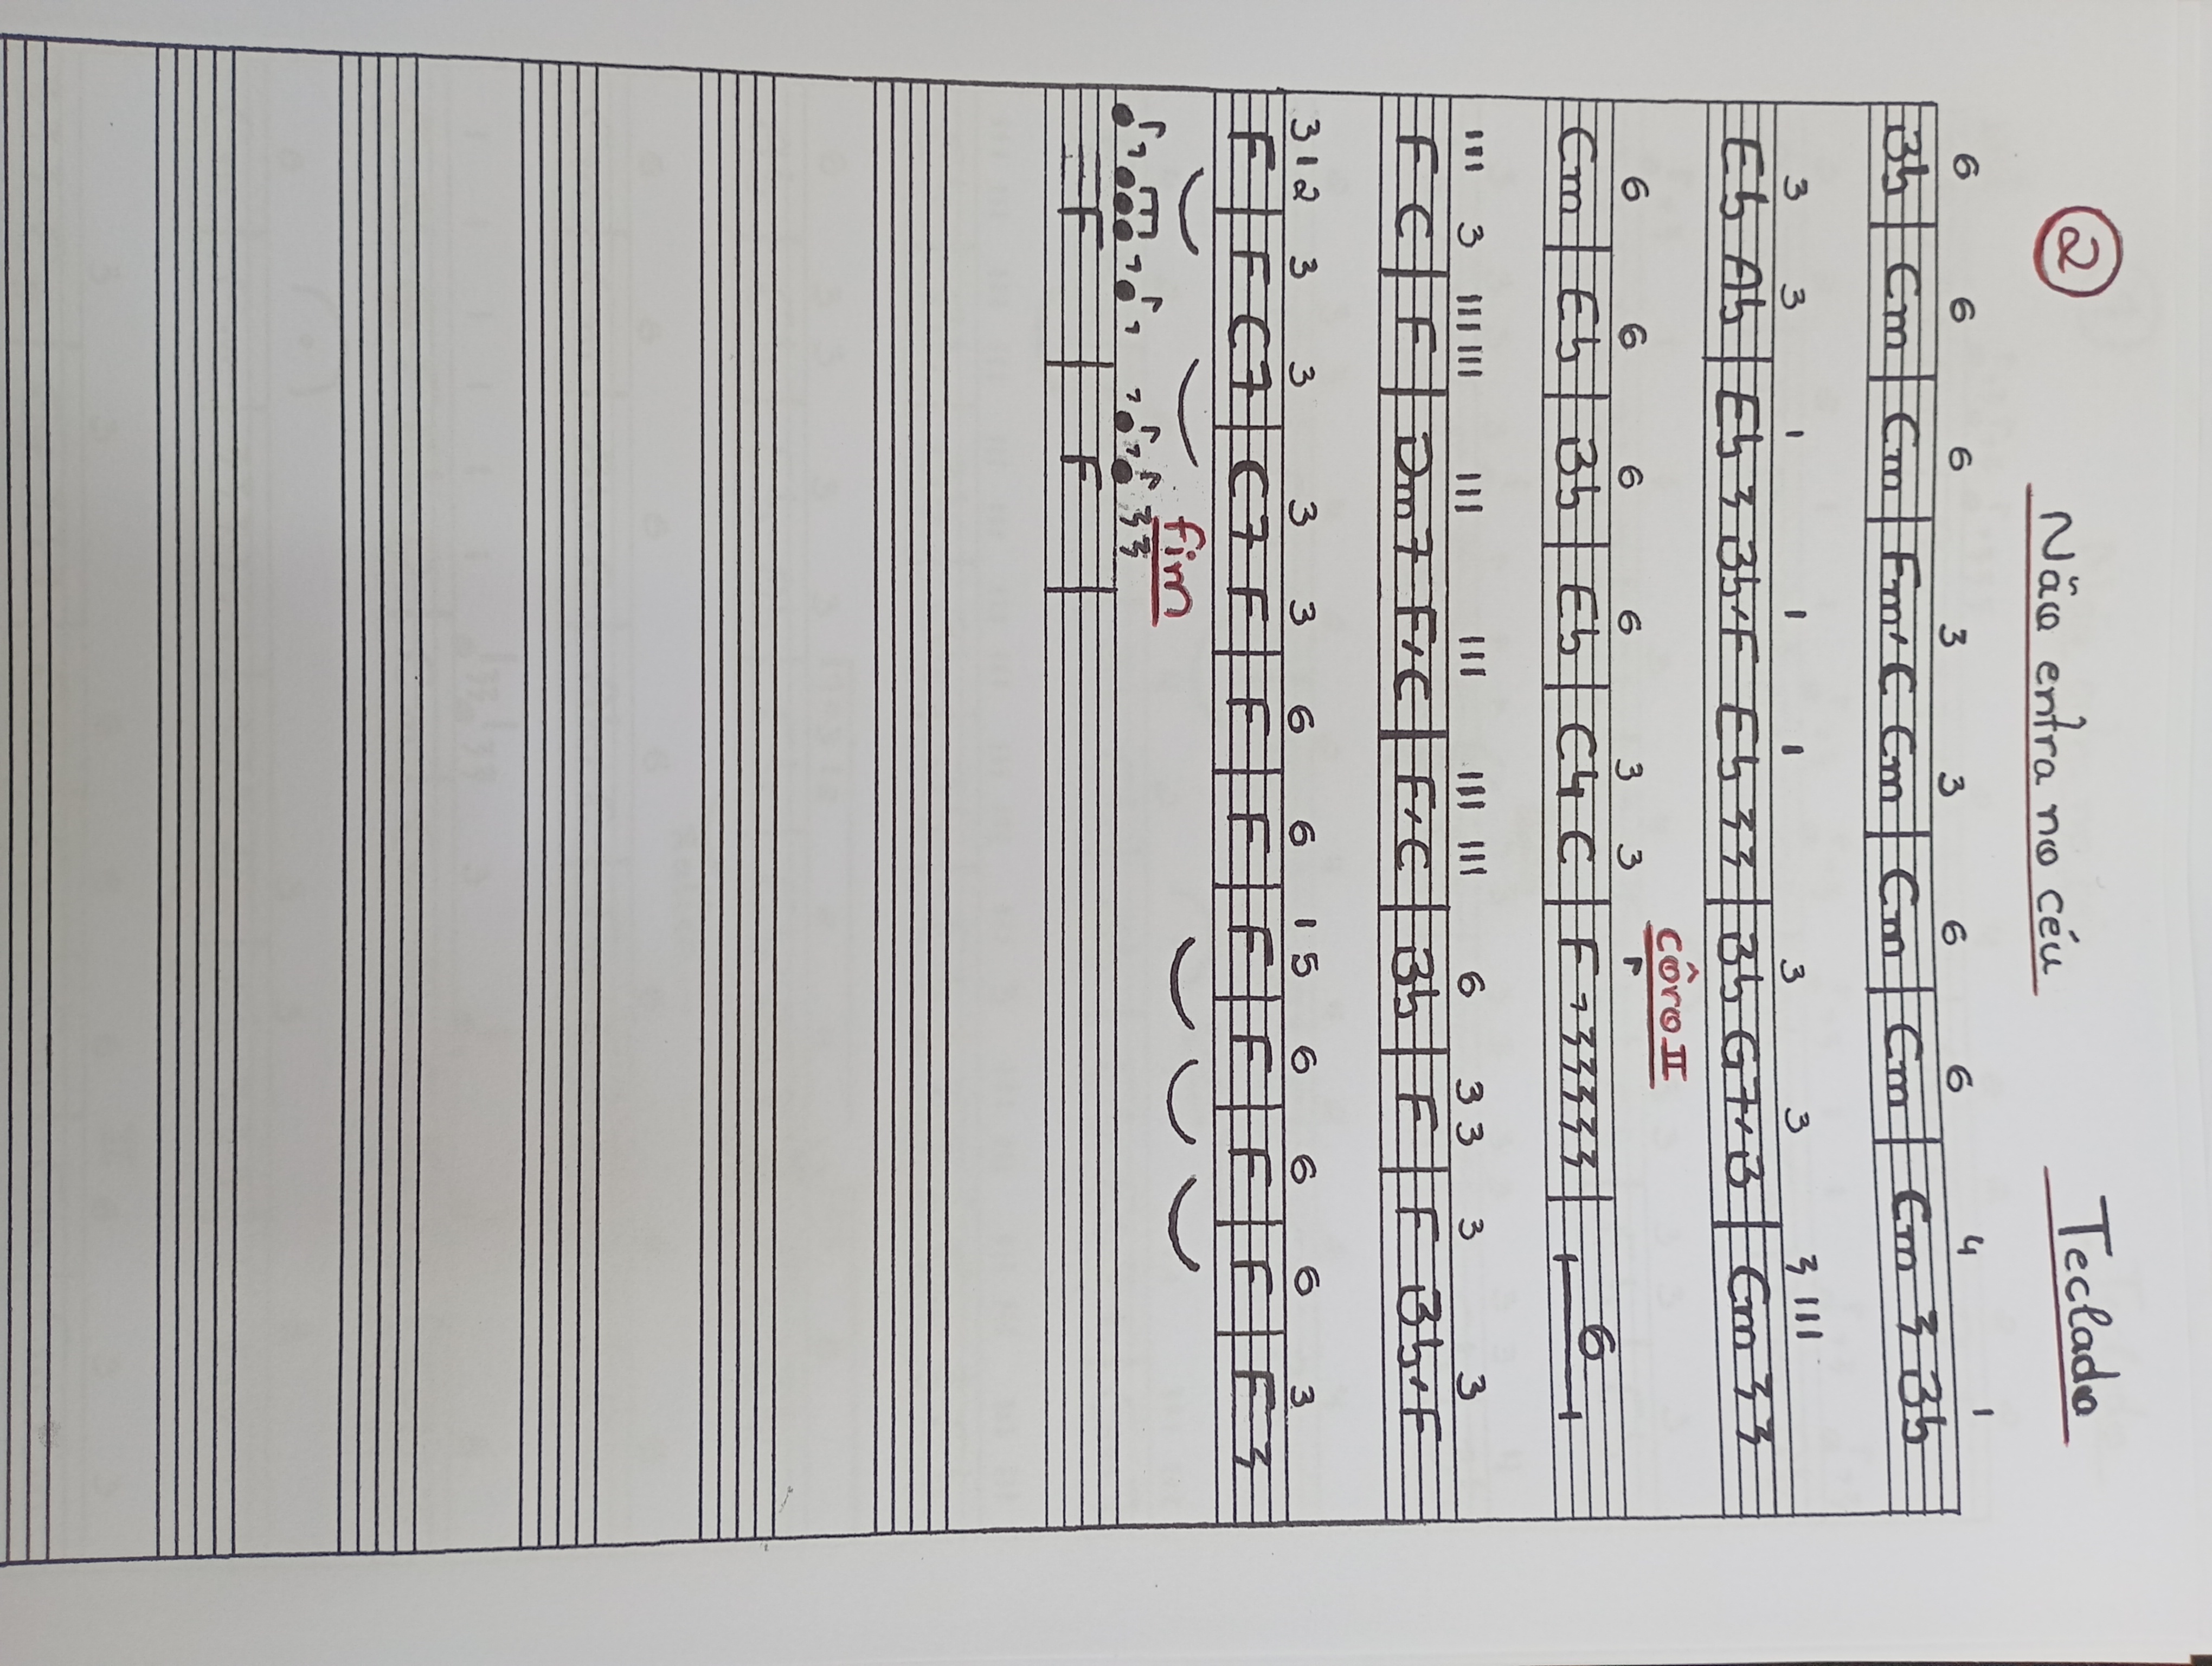 ② Não entra no céu Teclado
6 6 6 3 3 6 6 4 1
Bb | Cm | Cm | Fm/C Cm | Cm | Cm | Cm 𝄽 Bb
3 3 1 1 1 3 3 𝄽 III
Eb Ab | Eb 𝄽 Bb/F Eb 𝄽 𝄽 | Bb G7/B | Cm 𝄽 𝄽
Côro II
6 6 6 6 3 3
Cm | Eb | Bb | Eb | C4 C | F 𝄾 𝄽 𝄽 𝄽 𝄽 𝄽 | 6
III 3 III III III III III III 6 3 3 3 3
F C | F | Dm7 F/C | F/C | Bb | F | F Bb/F
3 1 2 3 3 3 3 6 6 1 5 6 6 6 3
F | F C7 | C7 F | F | F | F | F | F | F | F 𝄽
fim
F | F